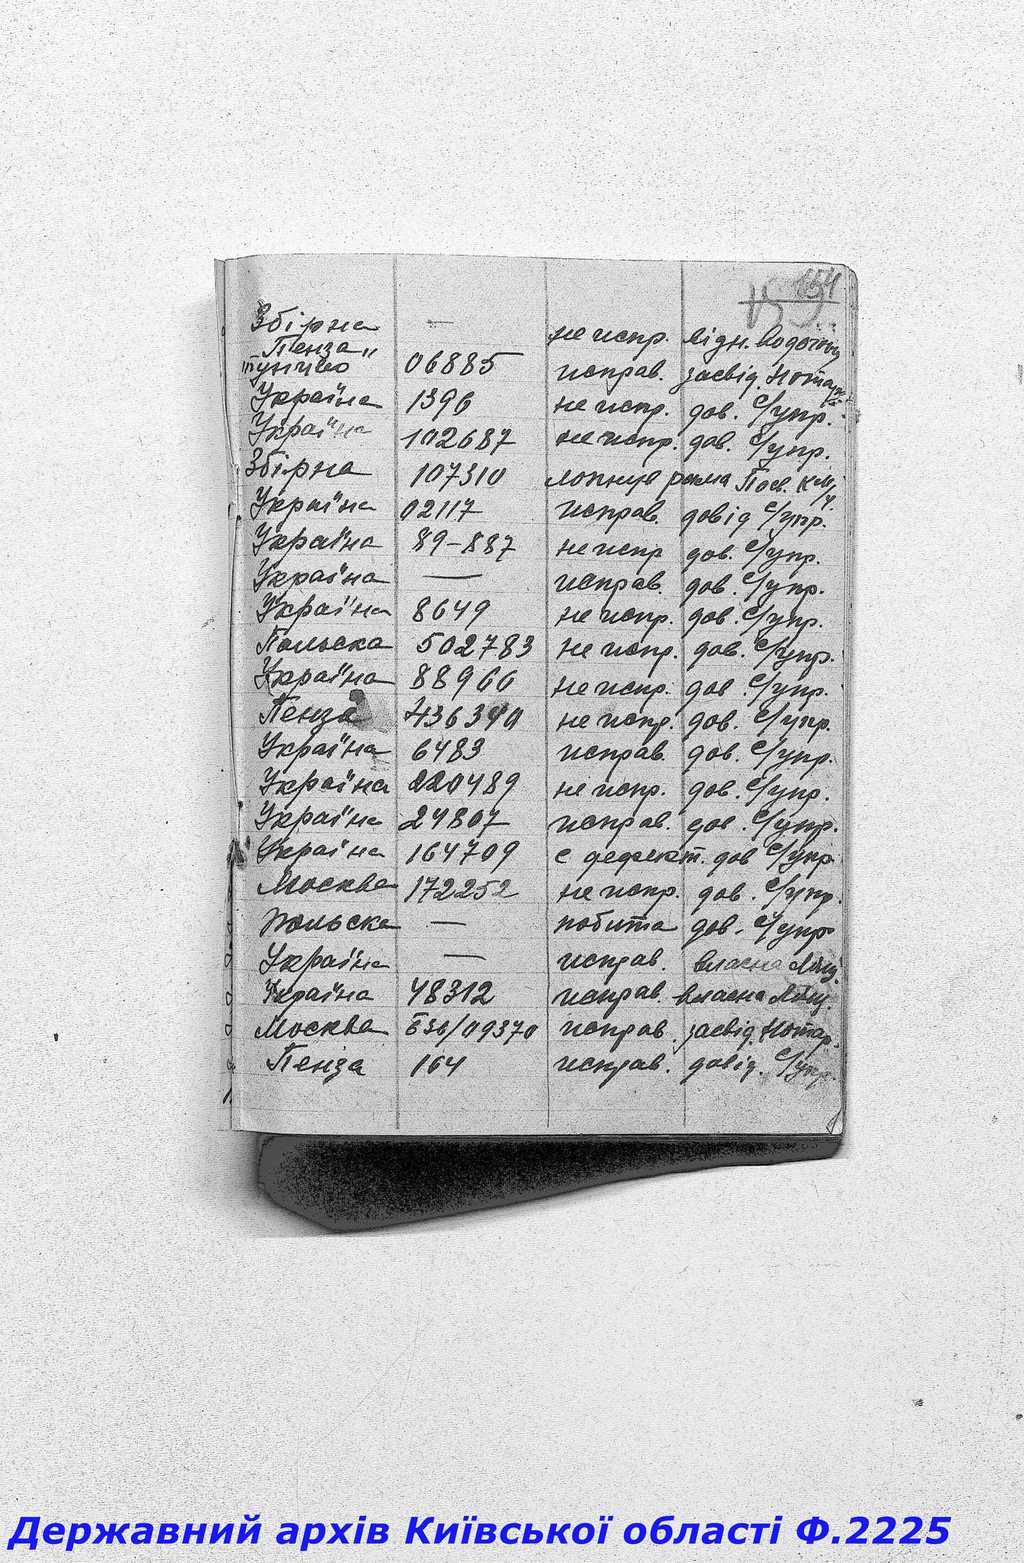 154
Збірна — не испр. відн. водоічн
"Пенза"
06885 исправ. засвід. Нотар.
Україна 1396 не испр. дов. С/упр.
Україна 102687 не испр. дов. С/упр.
Збірна 107310 лопнув рама Посв.
Україна 02117 исправ. довід С/упр.
Україна 89-887 не испр дов. С/упр.
Україна — исправ. дов. С/упр.
Україна 8649 не испр. дов. С/упр.
Польска 502783 не испр. дов. С/упр.
Україна 88966 не испр. дов. С/упр.
Пенза 436340 не испр. дов. С/упр.
Україна 6483 исправ. дов. С/упр.
Україна 220489 не испр. дов. С/упр.
Україна 24807 исправ. дов. С/упр.
Україна 164709 с дефект. дов С/упр
Москва 172252 не испр. дов. С/упр.
Польска — побита дов. С/упр
Україна — исправ. власна
Україна 48312 исправ. власна
Москва Б36/09370 исправ. засвід. Нотар.
Пенза 164 исправ. довід. С/упр.
Державний архів Київської області Ф.2225